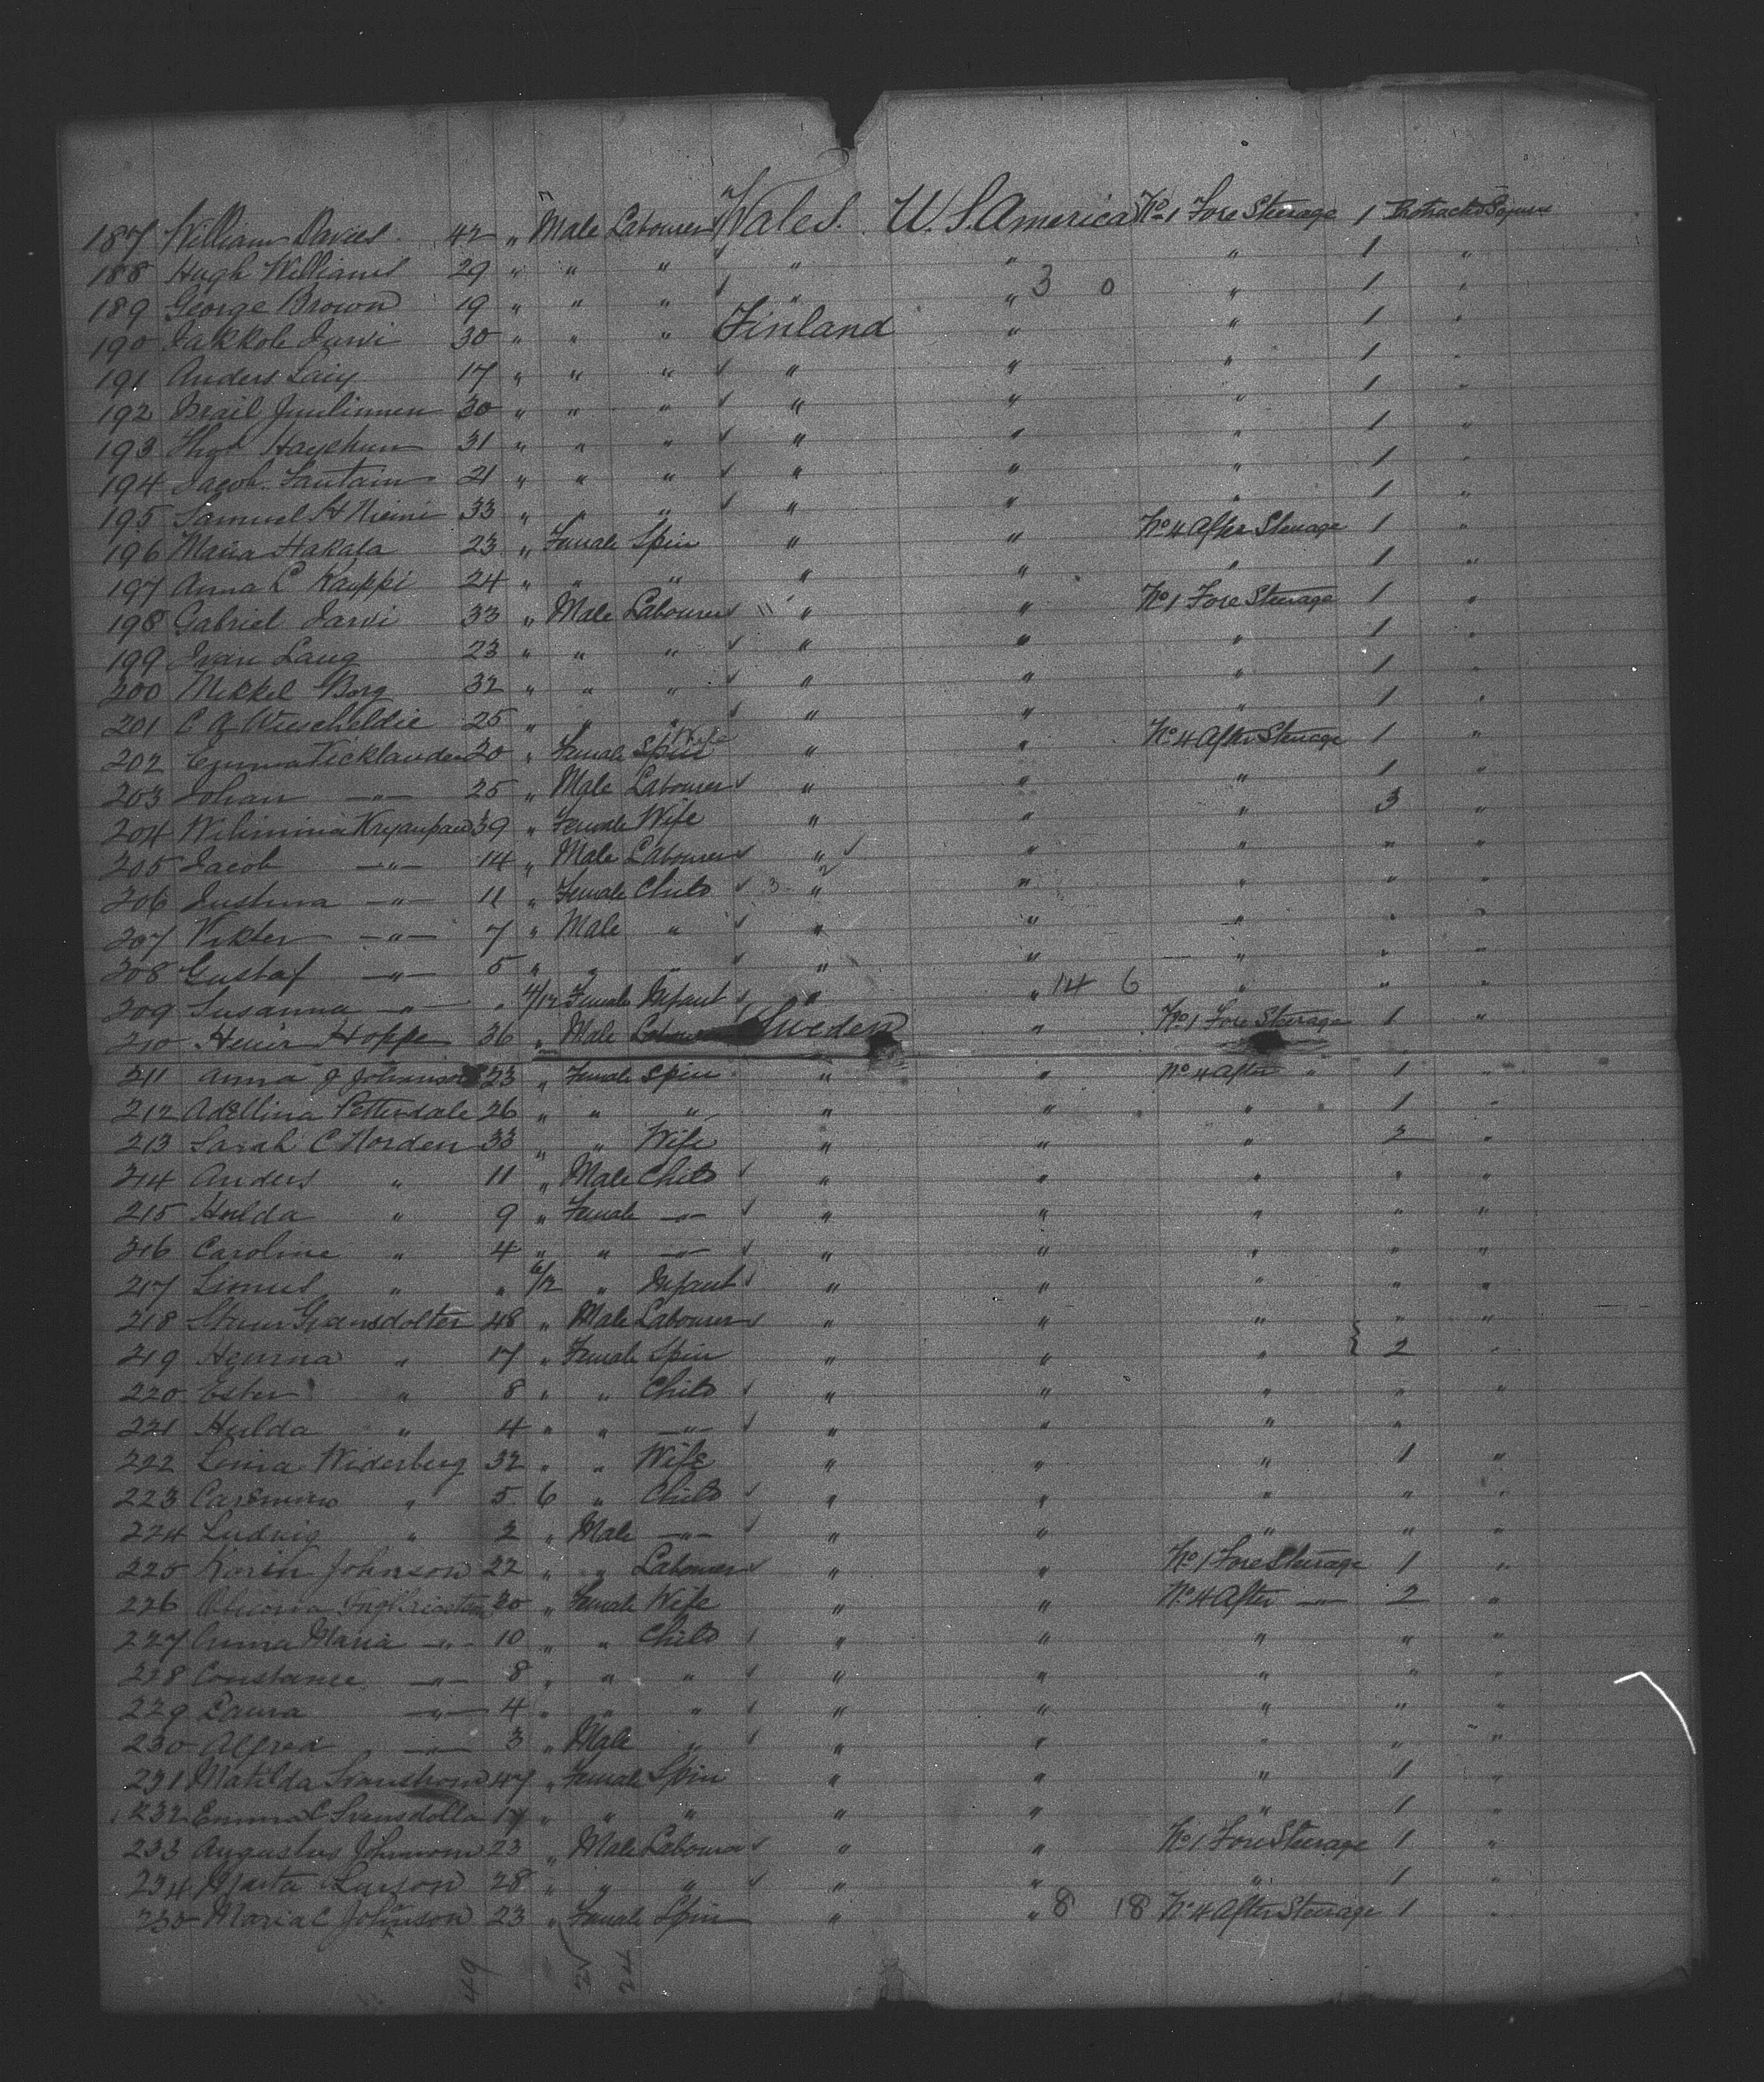 187 William Davies 42 " Male Labourer Wales. U.S. America No 1 Fore Steerage 1 Protracted Sojourn
188 Hugh Williams 29 " " " " " " 1 "
189 George Brown 19 " " " " " 3 0 " 1 "
190 Jakkob Jarvi 30 " " " Finland " " 1 "
191 Anders 17 " " " " " " 1 "
192 30 " " " " " " 1 "
193 31 " " " " " " 1 "
194 Jacob 21 " " " " " " 1 "
195 Samuel H Niemi 33 " " " " " " 1 "
196 Maria Hakala 23 " Female Spin " " No 4 After Steerage 1 "
197 Anna L Kauppi 24 " " " " " " 1 "
198 Gabriel Jarvi 33 " Male Labourer " " No 1 Fore Steerage 1 "
199 Ivan Laug 23 " " " " " " 1 "
200 Mikkel Borg 32 " " " " " " 1 "
201 C 25 " " " " " " 1 "
202 Emma Vicklander 20 " Female Spin Wife " " No 4 After Steerage 1 "
203 Johan " 25 " Male Labourer " " " 1 "
204 39 " Female Wife " " " 3 "
205 Jacob " 14 " Male Labourer " " " " "
206 Justina " 11 " Female Child 3 " " " " "
207 Vikter " 7 " Male " " " " " "
208 Gustaf " 5 " " " " " " " "
209 Susanna " " 4/12 Female Infant " " 14 6 " " "
210 Hoppe 36 " Male Labourer Sweden " No 1 Fore Steerage 1 "
211 Anna J Johanson 23 " Female Spin " " No 4 After " 1 "
212 Adellina Petterdale 26 " " " " " " 1 "
213 Sarah C Norden 33 " " Wife " " " 2 "
214 Anders " 11 " Male Child " " " " "
215 Hulda " 9 " Female " " " " " "
216 Caroline " 4 " " " " " " " "
217 Linus " " 6/12 " Infant " " " " "
218 48 " Male Labourer " " " " "
219 " 17 " Female Spin " " " 2 "
220 Ester " 8 " " Child " " " " "
221 Hulda " 4 " " " " " " "
222 Lina Widerberg 32 " " Wife " " " 1 "
223 " 5 6 " Child " " " " "
224 Ludwig " 2 " Male " " " " " "
225 Karin Johnson 22 " " Labourer " " No 1 Fore Steerage 1 "
226 30 " Female Wife " " No 4 After " 2 "
227 Anna Maria " 10 " " Child " " " " "
228 Constance " 8 " " " " " " " "
229 Laura " 4 " " " " " " " "
230 Alfred " 3 " Male " " " " " "
231 Matilda Svanstrom 47 " Female Spin " " " 1 "
232 Emma C Svensdolla 17 " " " " " " 1 "
233 Augustus Johnson 23 " Male Labourer " " No 1 Fore Steerage 1 "
234 Larson 28 " " " " " " 1 "
235 Maria C Johnson 23 " Female Spin " " 8 18 No 4 After Steerage 1 "
49 24